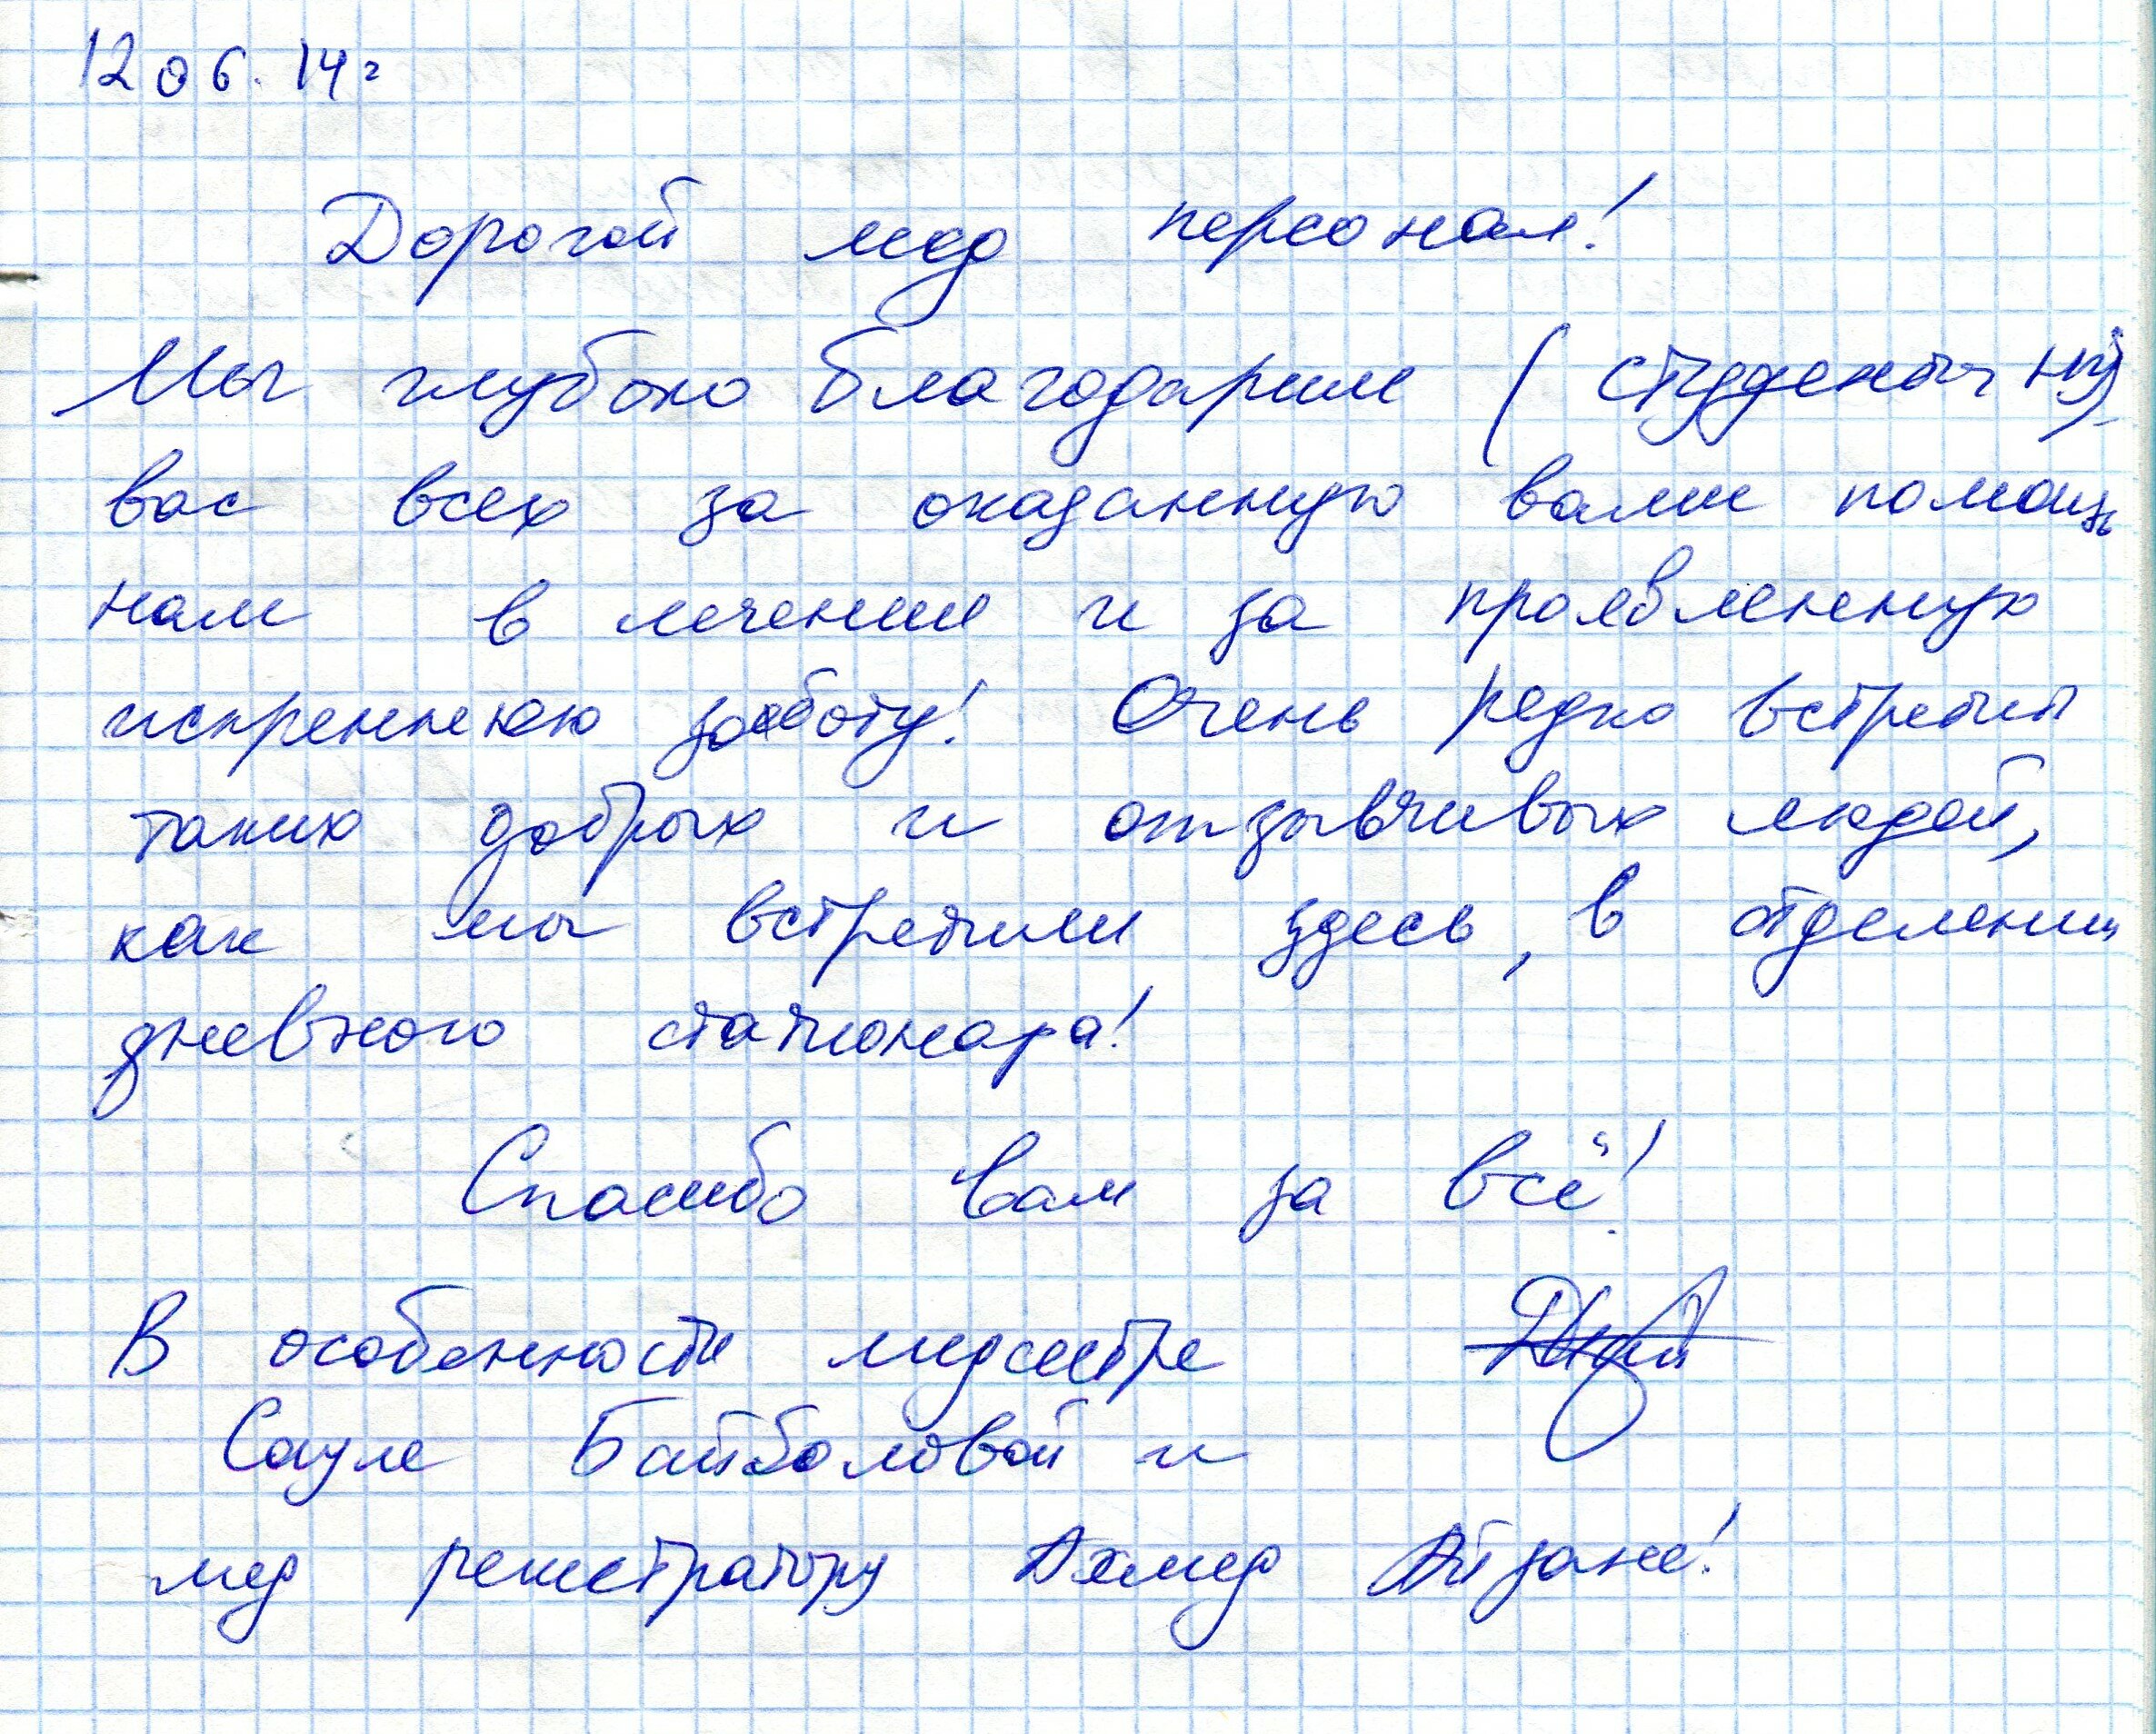 12 06. 14г
Дорогой мед персонал!
Мы глубоко благодарим (студенты НУ)
вас всех за оказанную вами помощь
нам в лечении и за проявленную
искреннюю заботу! Очень редко встретит
таких добрых и отзывчивых людей,
как мы встретили здесь, в отделении
дневного стационара!
Спасибо вам за всё!
В особенности медсестре
Сауле Байболовой и
мед регистратору Ахмед Айзане!